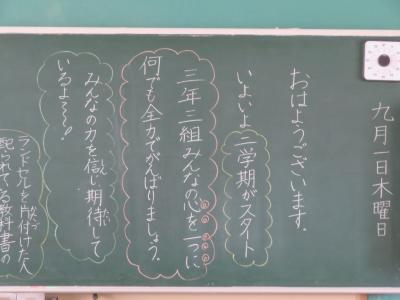 九月一日木曜日
おはようございます。
いよいよ二学期がスタート
三年三組みんな心を一つに
何でも全力でがんばりましょう。
みんなの力を信じ期待して
いるよ〜〜!
ランドセルを片付けた人
配られている教科書の